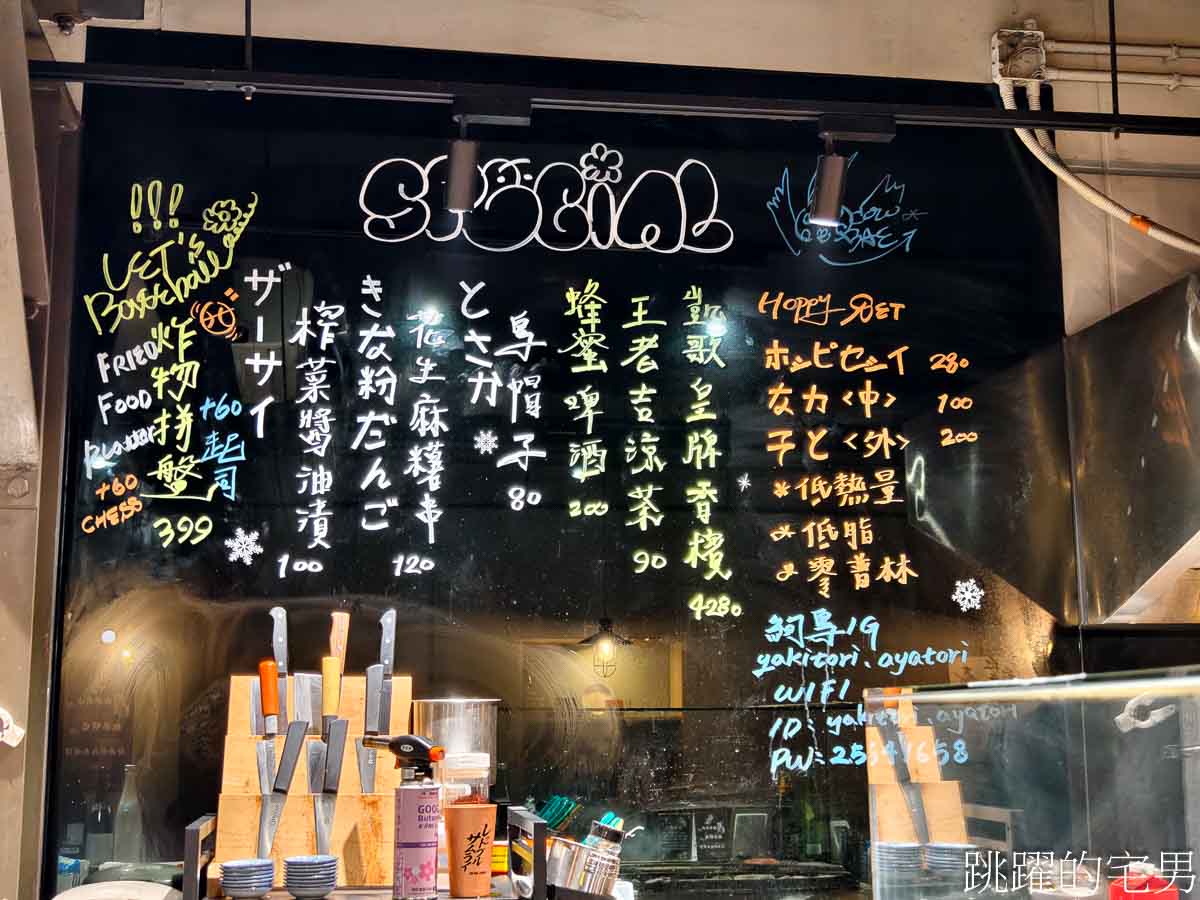 SPECIAL
!!!
LET'S
Baseball
FRIED
FOOD
炸物拼盤
+60
起司
+60
CHESS
399
ザーサイ
榨菜醬油漬
100
きな粉だんご
花生麻糬串
120
とさか
鳥帽子
80
蜂蜜啤酒
200
王老吉涼茶
90
凱歌皇牌香檳
4280
Hoppy SET
ホッピセット 280
なカ<中> 100
干と<外> 200
*低熱量
*低脂
*零普林
鳥IG
yakitori.ayatori
WIFI
ID: yakitori.ayatori
しどろ
サムライ
跳躍的宅男